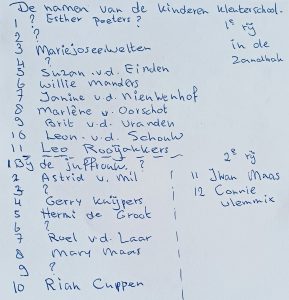 De namen van de kinderen kleuterschool.
1 ? Esther peeters? 1e rij
2 ? in de
3 Mariejosee welten zandbak
4 ?
5 Suzan v.d. Einden
6 willie manders
7 Janine v.d. Nieuwenhof
8 Marlène v. Oorschot
9 Brit v.d. Vranden
10 Leon v.d. Schouw
11 Leo Rooijakkers
1 Bij de juffrouw ? 2e rij
2 Astrid v. mil 11 Jwan Maas
3 ? 12 Connie
4 Gerry Knijpers vlemmix
5 Hermi de Groot
6 ?
7 Roel v.d. Laar
8 Mary Maas
9 ?
10 Riah Cuppen